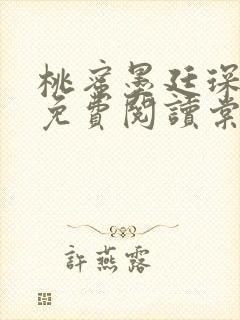 桃蜜墨廷琛
免費閱讀棠
許燕露